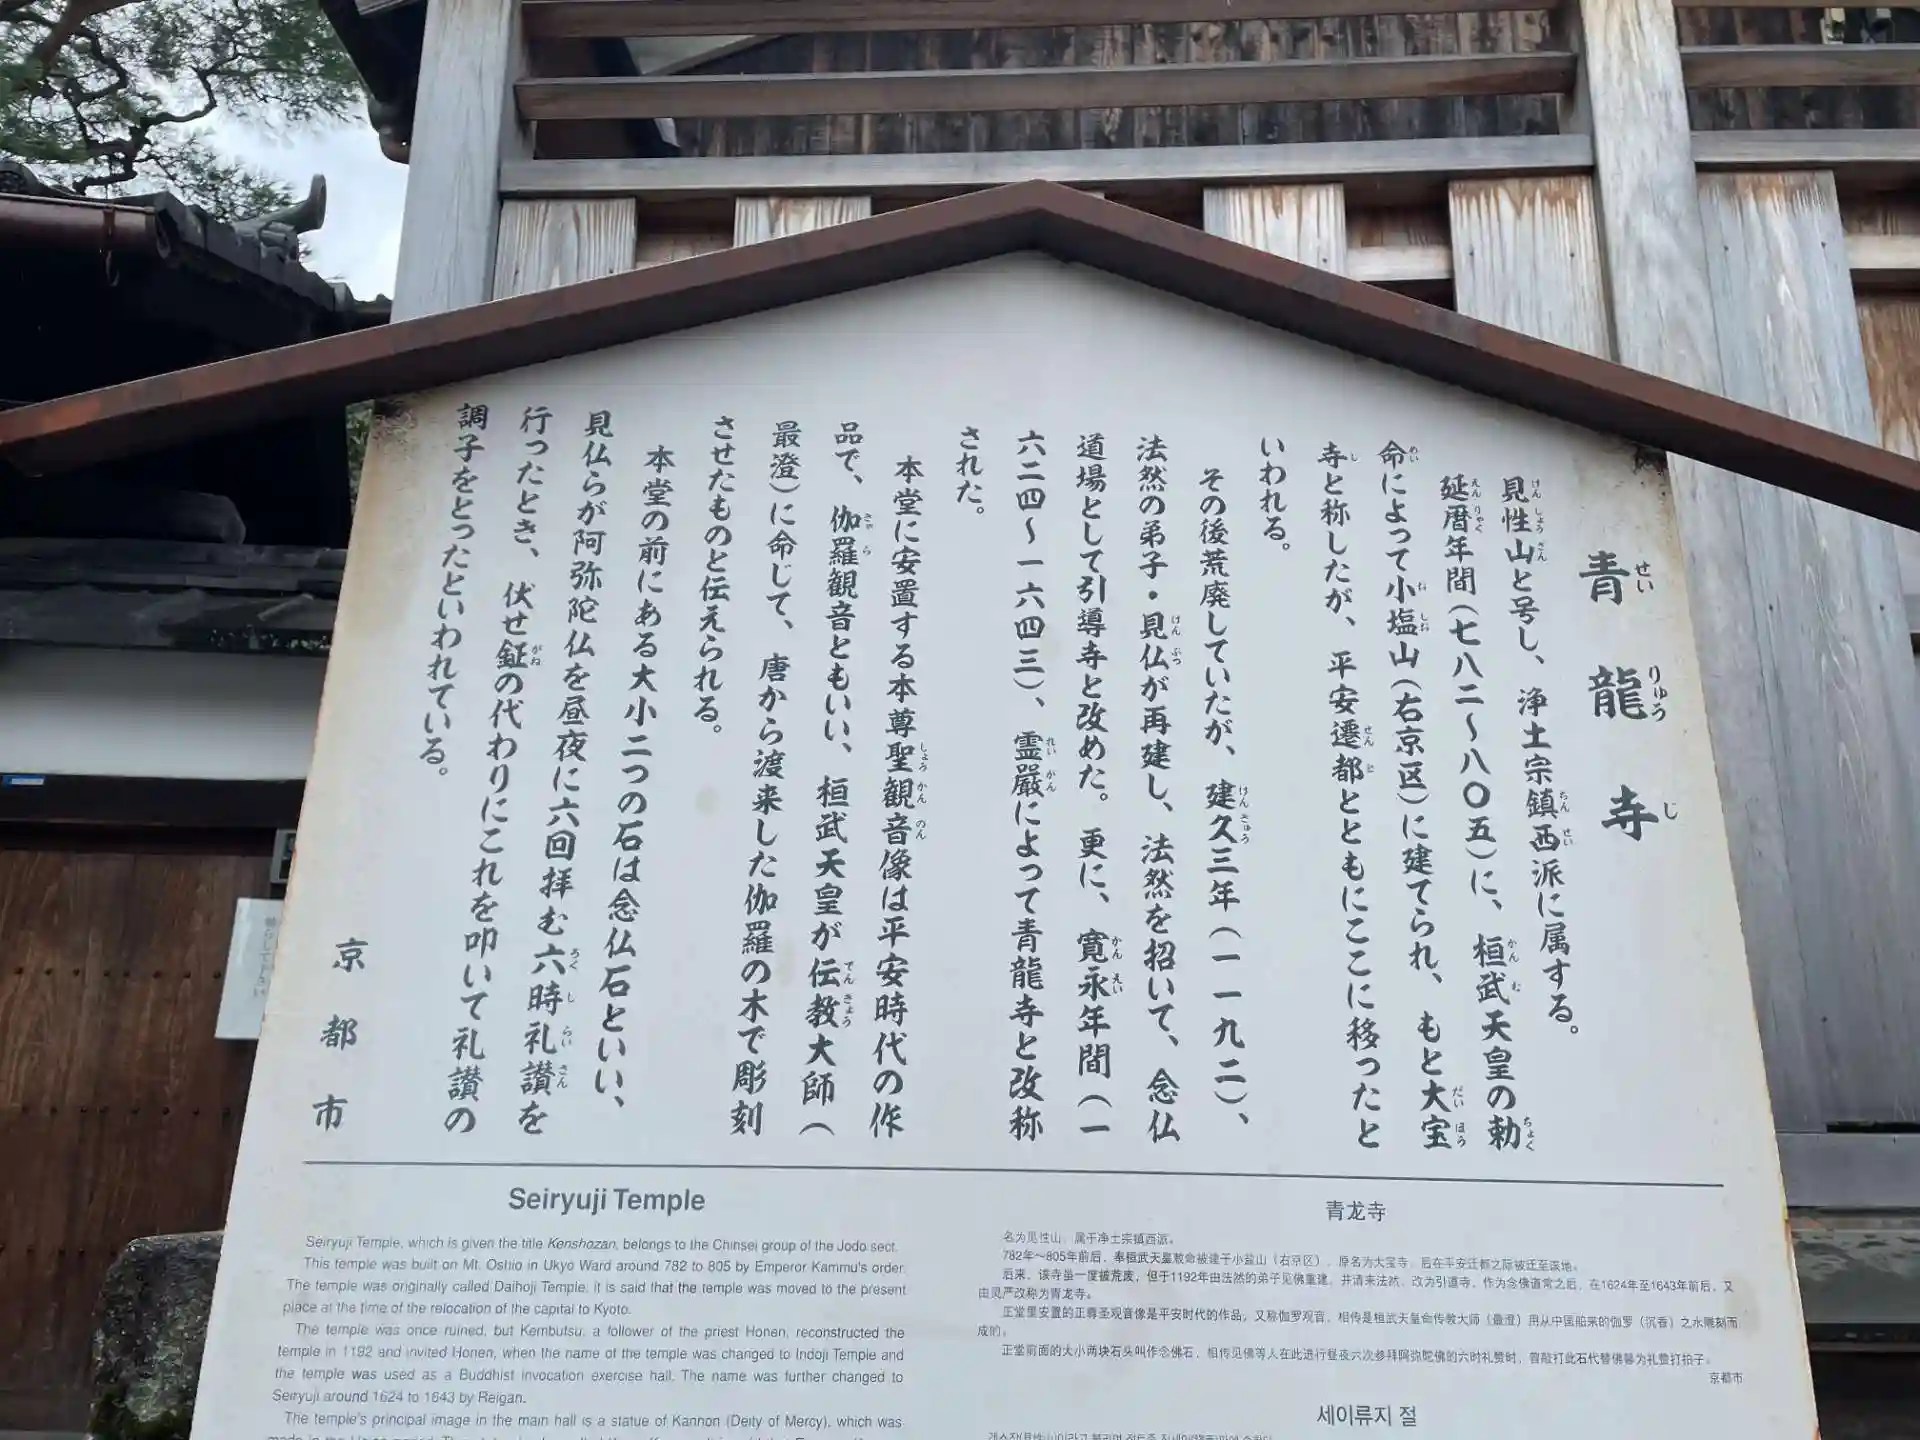 青龍寺
せいりゅうじ
見性山と号し、浄土宗鎮西派に属する。
延暦年間(七八二～八〇五)に、桓武天皇の勅
命によって小塩山(右京区)に建てられ、もと大宝
寺と称したが、平安遷都とともにここに移ったと
いわれる。
その後荒廃していたが、建久三年(一一九二)、
法然の弟子・見仏が再建し、法然を招いて、念仏
道場として引導寺と改めた。更に、寛永年間(一
六二四～一六四三)、霊厳によって青龍寺と改称
された。
本堂に安置する本尊聖観音像は平安時代の作
品で、伽羅観音ともいい、桓武天皇が伝教大師(
最澄)に命じて、唐から渡来した伽羅の木で彫刻
させたものと伝えられる。
本堂の前にある大小二つの石は念仏石といい、
見仏らが阿弥陀仏を昼夜に六回拝む六時礼讃を
行ったとき、伏せ鉦の代わりにこれを叩いて礼讃の
調子をとったといわれている。
京都市
Seiryuji Temple
Seiryuji Temple, which is given the title Kenshozan, belongs to the Chinsei group of the Jodo sect.
This temple was built on Mt. Oshio in Ukyo Ward around 782 to 805 by Emperor Kammu's order.
The temple was originally called Daihoji Temple, it is said that the temple was moved to the present
place at the time of the relocation of the capital to Kyoto.
The temple was once ruined, but Kembutsu, a follower of the priest Honen, reconstructed the
temple in 1192 and invited Honen, when the name of the temple was changed to Indoji Temple and
the temple was used as a Buddhist invocation exercise hall. The name was further changed to
Seiryuji around 1624 to 1643 by Reigan.
The temple's principal image in the main hall is a statue of Kannon (Deity of Mercy), which was
青龙寺
名为见性山，属于净土宗镇西派。
782年～805年前后，奉桓武天皇敕命被建于小盐山（右京区），原名为大宝寺，后在平安迁都之际被迁至该地。
后来，该寺虽一度被荒废，但于1192年由法然的弟子见佛重建，并请来法然，改为引道寺，作为念佛道常之后，在1624年至1643年前后，又
由灵严改称为青龙寺。
正堂里安置的正尊圣观音像是平安时代的作品，又称伽罗观音，相传是桓武天皇命传教大师（最澄）用从中国舶来的伽罗（沉香）之木雕刻而
成的。
正堂前面的大小两块石头叫作念佛石，相传见佛等人在此进行昼夜六次参拜阿弥陀佛的六时礼赞时，曾敲打此石代替佛磬为礼赞打拍子。
京都市
세이류지 절